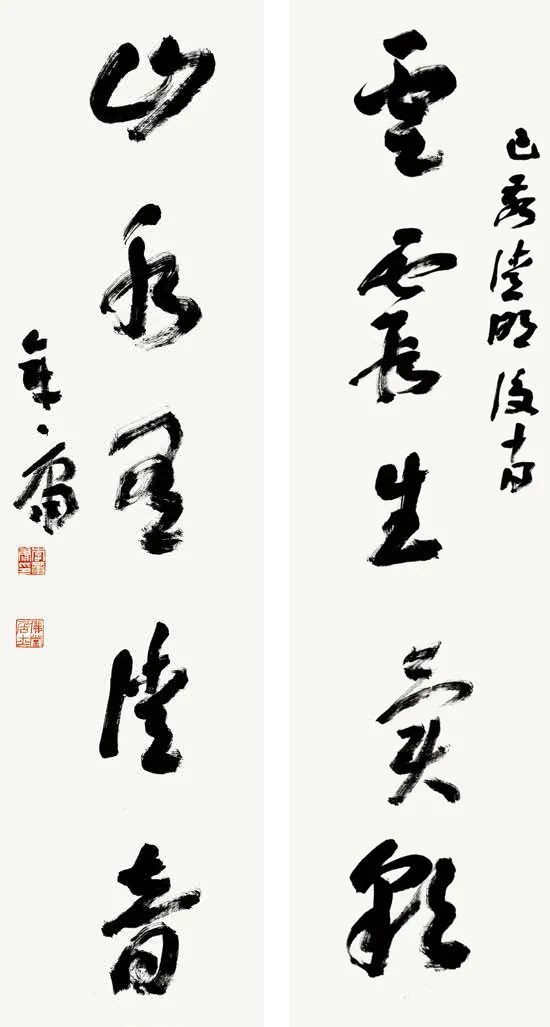 己亥清明後十日
雲霞生異彩
山水有清音